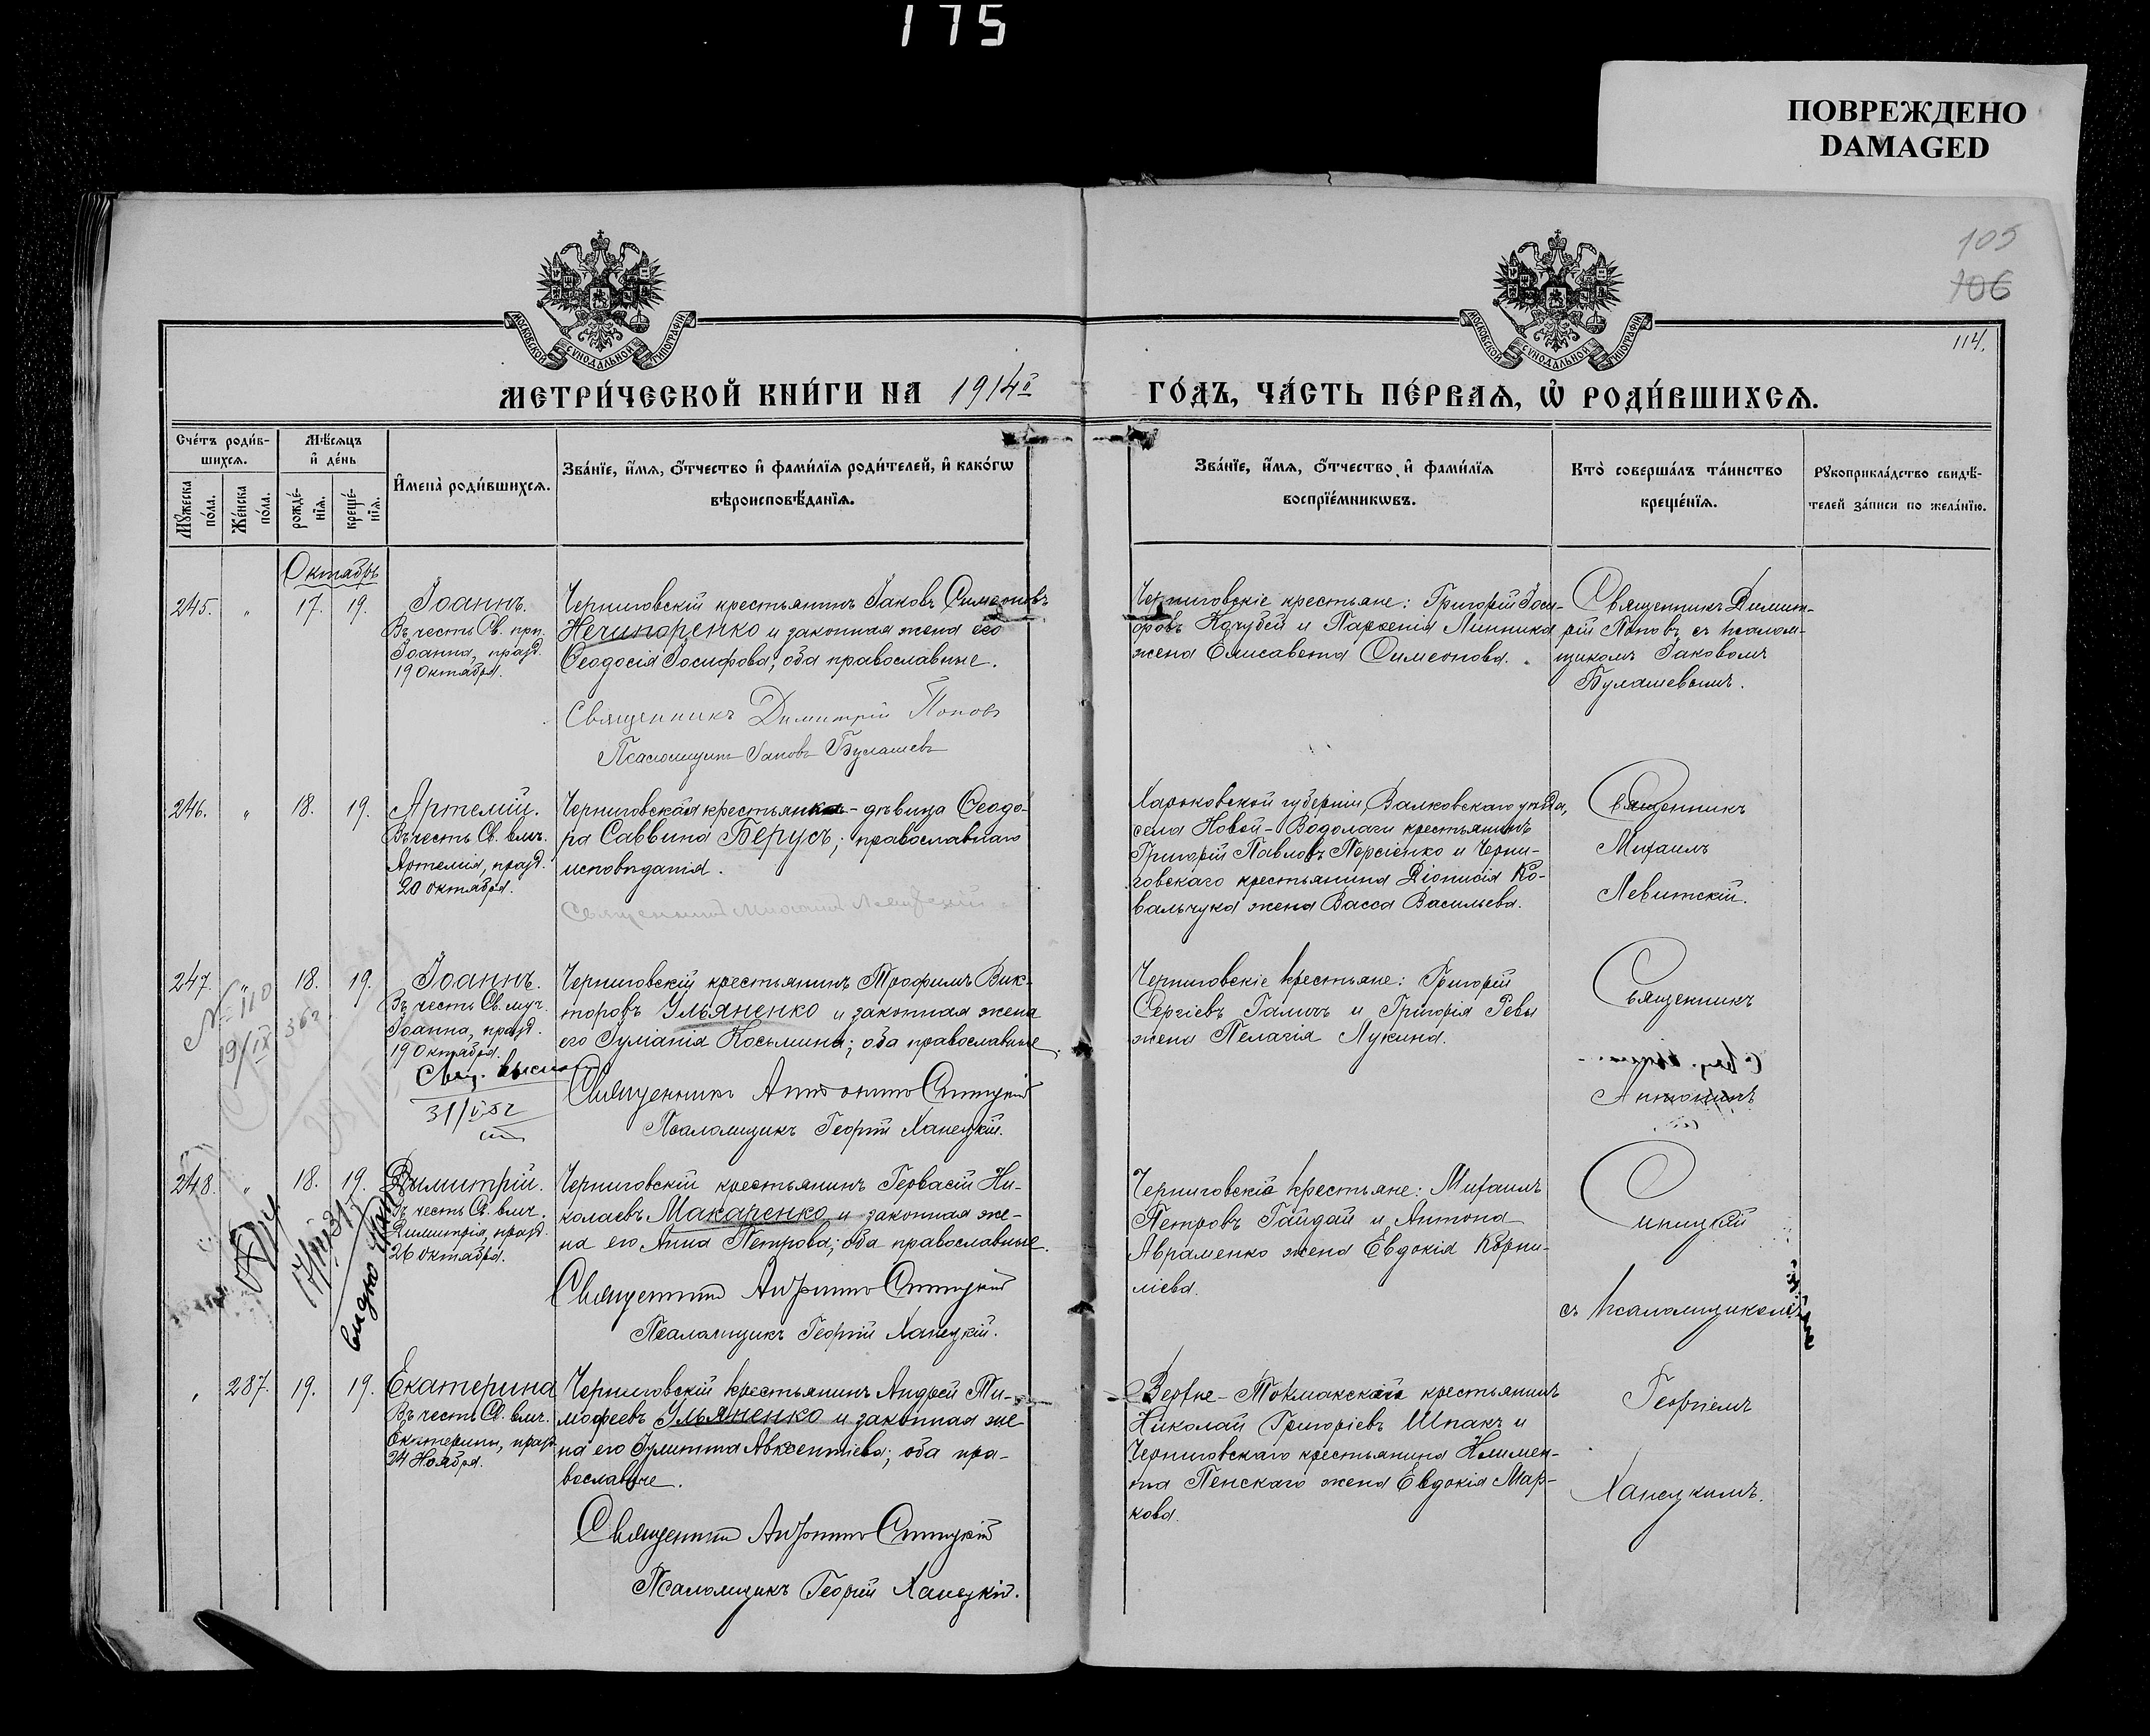 175
ПОВРЕЖДЕНО
DAMAGED
105
106
114.
МОСКОВСКОЙ СѴНОДАЛЬНОЙ ТИПОГРАФІИ
МОСКОВСКОЙ СѴНОДАЛЬНОЙ ТИПОГРАФІИ
МЕТРИ́ЧЕСКОЙ КНИ́ГИ НА 1914й ГО́ДЪ, ЧА́СТЬ ПЕ́РВАѦ, Ѡ҆ РОДИ́ВШИХСѦ.
Сче́тъ роди́в-
шихсѧ.
Мꙋ́жеска
по́ла.
Же́нска
по́ла.
Мѣ́сѧцъ
и҆ де́нь
рожде́-
нїѧ.
креще́-
нїѧ.
И҆мена̀ роди́вшихсѧ.
Зва́нїе, и҆́мѧ, ѻ҆́тчество и҆ фами́лїѧ роди́телей, и҆ како́гѡ
вѣроисповѣ́данїѧ.
Зва́нїе, и҆́мѧ, ѻ҆́тчество и҆ фами́лїѧ
воспрїе́мникѡвъ.
Кто̀ соверша́лъ та́инство
креще́нїѧ.
Рꙋкоприкла́дство свидѣ́-
телей за́писи по жела́нїю.
Октябрь
245. " 17. 19.
Іоаннъ.
Въ честь Св. прп.
Іоанна, празд.
19 Октября.
Черниговскій крестьянинъ Іаковъ Симеоновъ
Нечипоренко и законная жена его
Ѳеодосія Іосифова; оба православные.
Священникъ Димитрій Поповъ
Псаломщикъ Іаковъ Булашевъ
Черниговскіе крестьяне: Григорій Іоси-
форовъ Кочубей и Парѳенія Линника
жена Елисавета Симеонова.
Священникъ Димит-
рій Поповъ съ псалом-
щикомъ Іаковомъ
Булашевымъ.
246. " 18. 19.
Артемій.
Въ честь Св. влм.
Артемія, празд.
20 октября.
Черниговская крестьянка - дѣвица Ѳеодо-
ра Саввина Берусъ; православнаго
исповѣданія.
Священникъ Михаилъ Левитскій
Харьковской губерніи, Валковскаго уѣзда,
села Новой-Водолаги крестьянинъ
Григорій Павловъ Персіенко и Черни-
говскаго крестьянина Діонисія Ко-
вальчука жена Васса Васильева.
Священникъ
Михаилъ
Левитскій.
247. " 18. 19.
№ 110
19/IX 36г
Іоаннъ.
Въ честь Св. муч.
Іоанна, празд.
19 Октября.
31/V 52
Черниговскій крестьянинъ Трофимъ Вик-
торовъ Ульяненко и законная жена
его Іуліанія Косьмина; оба православные.
Священникъ Антонинъ Синицкій
Псаломщикъ Георгій Ханецкій.
Черниговскіе крестьяне: Григорій
Сергіевъ Галичъ и Григорія Ревы
жена Пелагія Лукина.
Священникъ
Антонинъ
248. " 18. 19.
Димитрій.
Въ честь Св. влм.
Димитрія, празд.
26 октября.
Черниговскій крестьянинъ Гервасій Ни-
колаевъ Макаренко и законная же-
на его Анна Петрова; оба православные.
Священникъ Антонинъ Синицкій
Псаломщикъ Георгій Ханецкій.
Черниговскіе крестьяне: Михаилъ
Петровъ Гайдай и Антона
Авраменко жена Евдокія Корни-
ліева.
Синицкій
съ псаломщикомъ
" 287. 19. 19.
Екатерина
Въ честь Св. влм.
Екатерины, празд.
24 Ноября.
Черниговскій крестьянинъ Андрей Ти-
мофеевъ Ульяненко и законная же-
на его Іулитта Авксентіева; оба пра-
вославные.
Священникъ Антонинъ Синицкій
Псаломщикъ Георгій Ханецкій.
Верхне-Токмакскій крестьянинъ
Николай Григоріевъ Шпакъ и
Черниговскаго крестьянина Климен-
та Пенскаго жена Евдокія Мар-
кова.
Георгіемъ
Ханецкимъ.